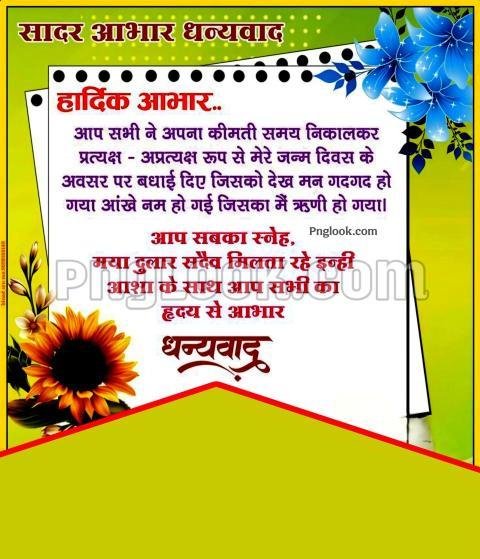 सादर आभार धन्यवाद
हार्दिक आभार..
आप सभी ने अपना कीमती समय निकालकर
प्रत्यक्ष - अप्रत्यक्ष रूप से मेरे जन्म दिवस के
अवसर पर बधाई दिए जिसको देख मन गदगद हो
गया आंखे नम हो गई जिसका मैं ऋणी हो गया।
Pnglook.com
आप सबका स्नेह,
मया दुलार सदैव मिलता रहे इन्ही
आशा के साथ आप सभी का
हृदय से आभार
धन्यवाद
Pnglook.com